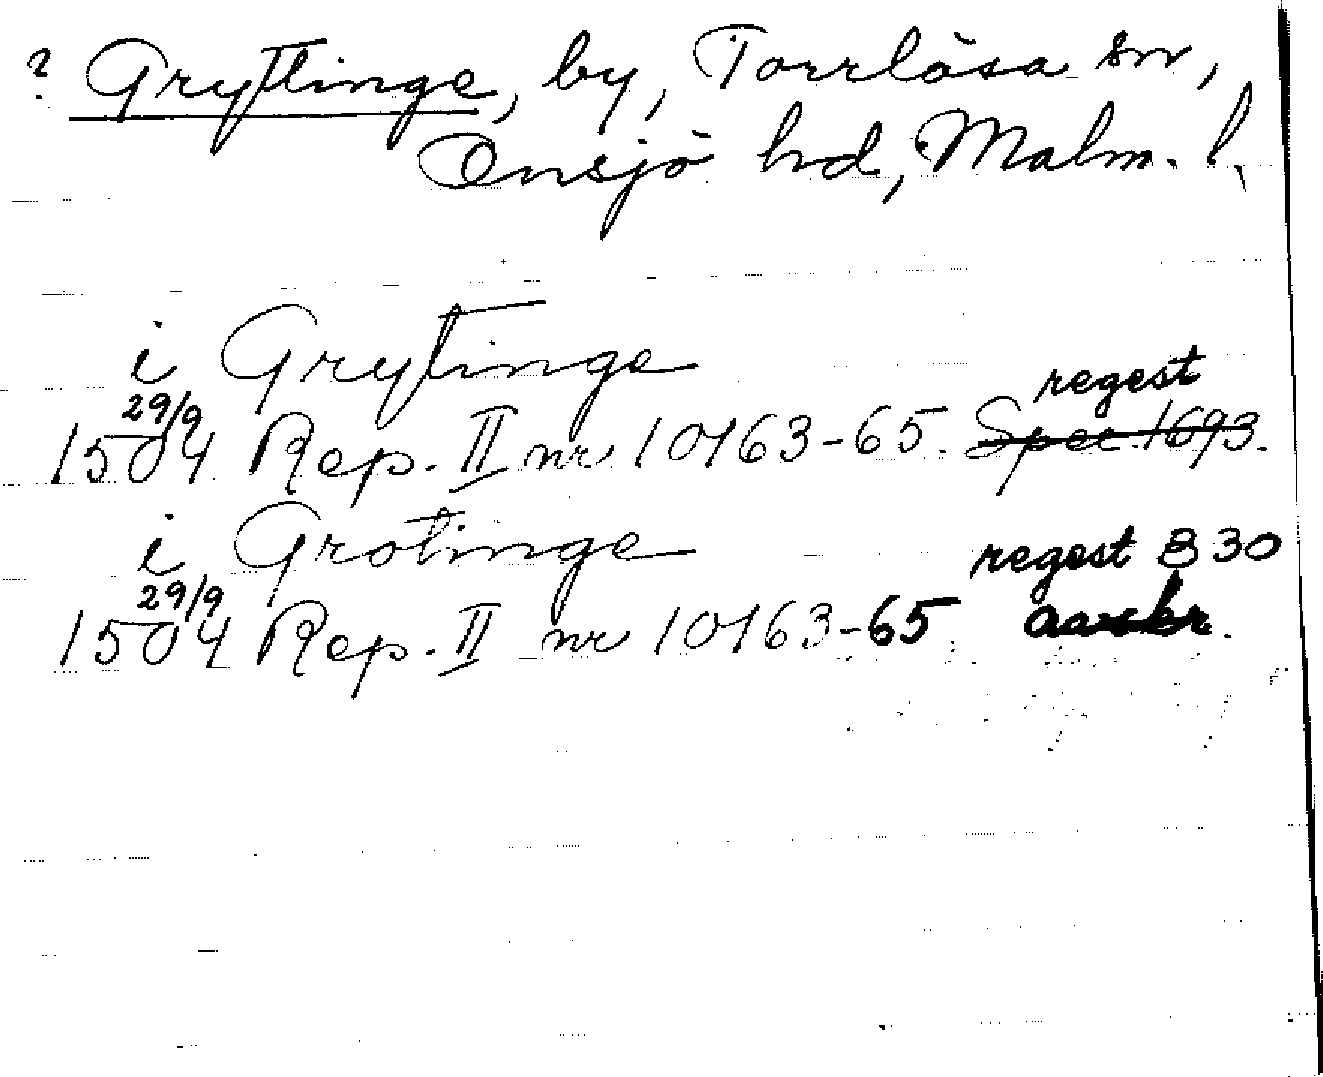 ? Gryttinge, by, Torrlösa sn,
Onsjö hd, Malm. l.
i Grytinge
regest
29/9
1504 Rep. II nr 10163-65. Spec. 1693.
i Grotinge
regest B 30
29/9
1504 Rep. II nr 10163-65.